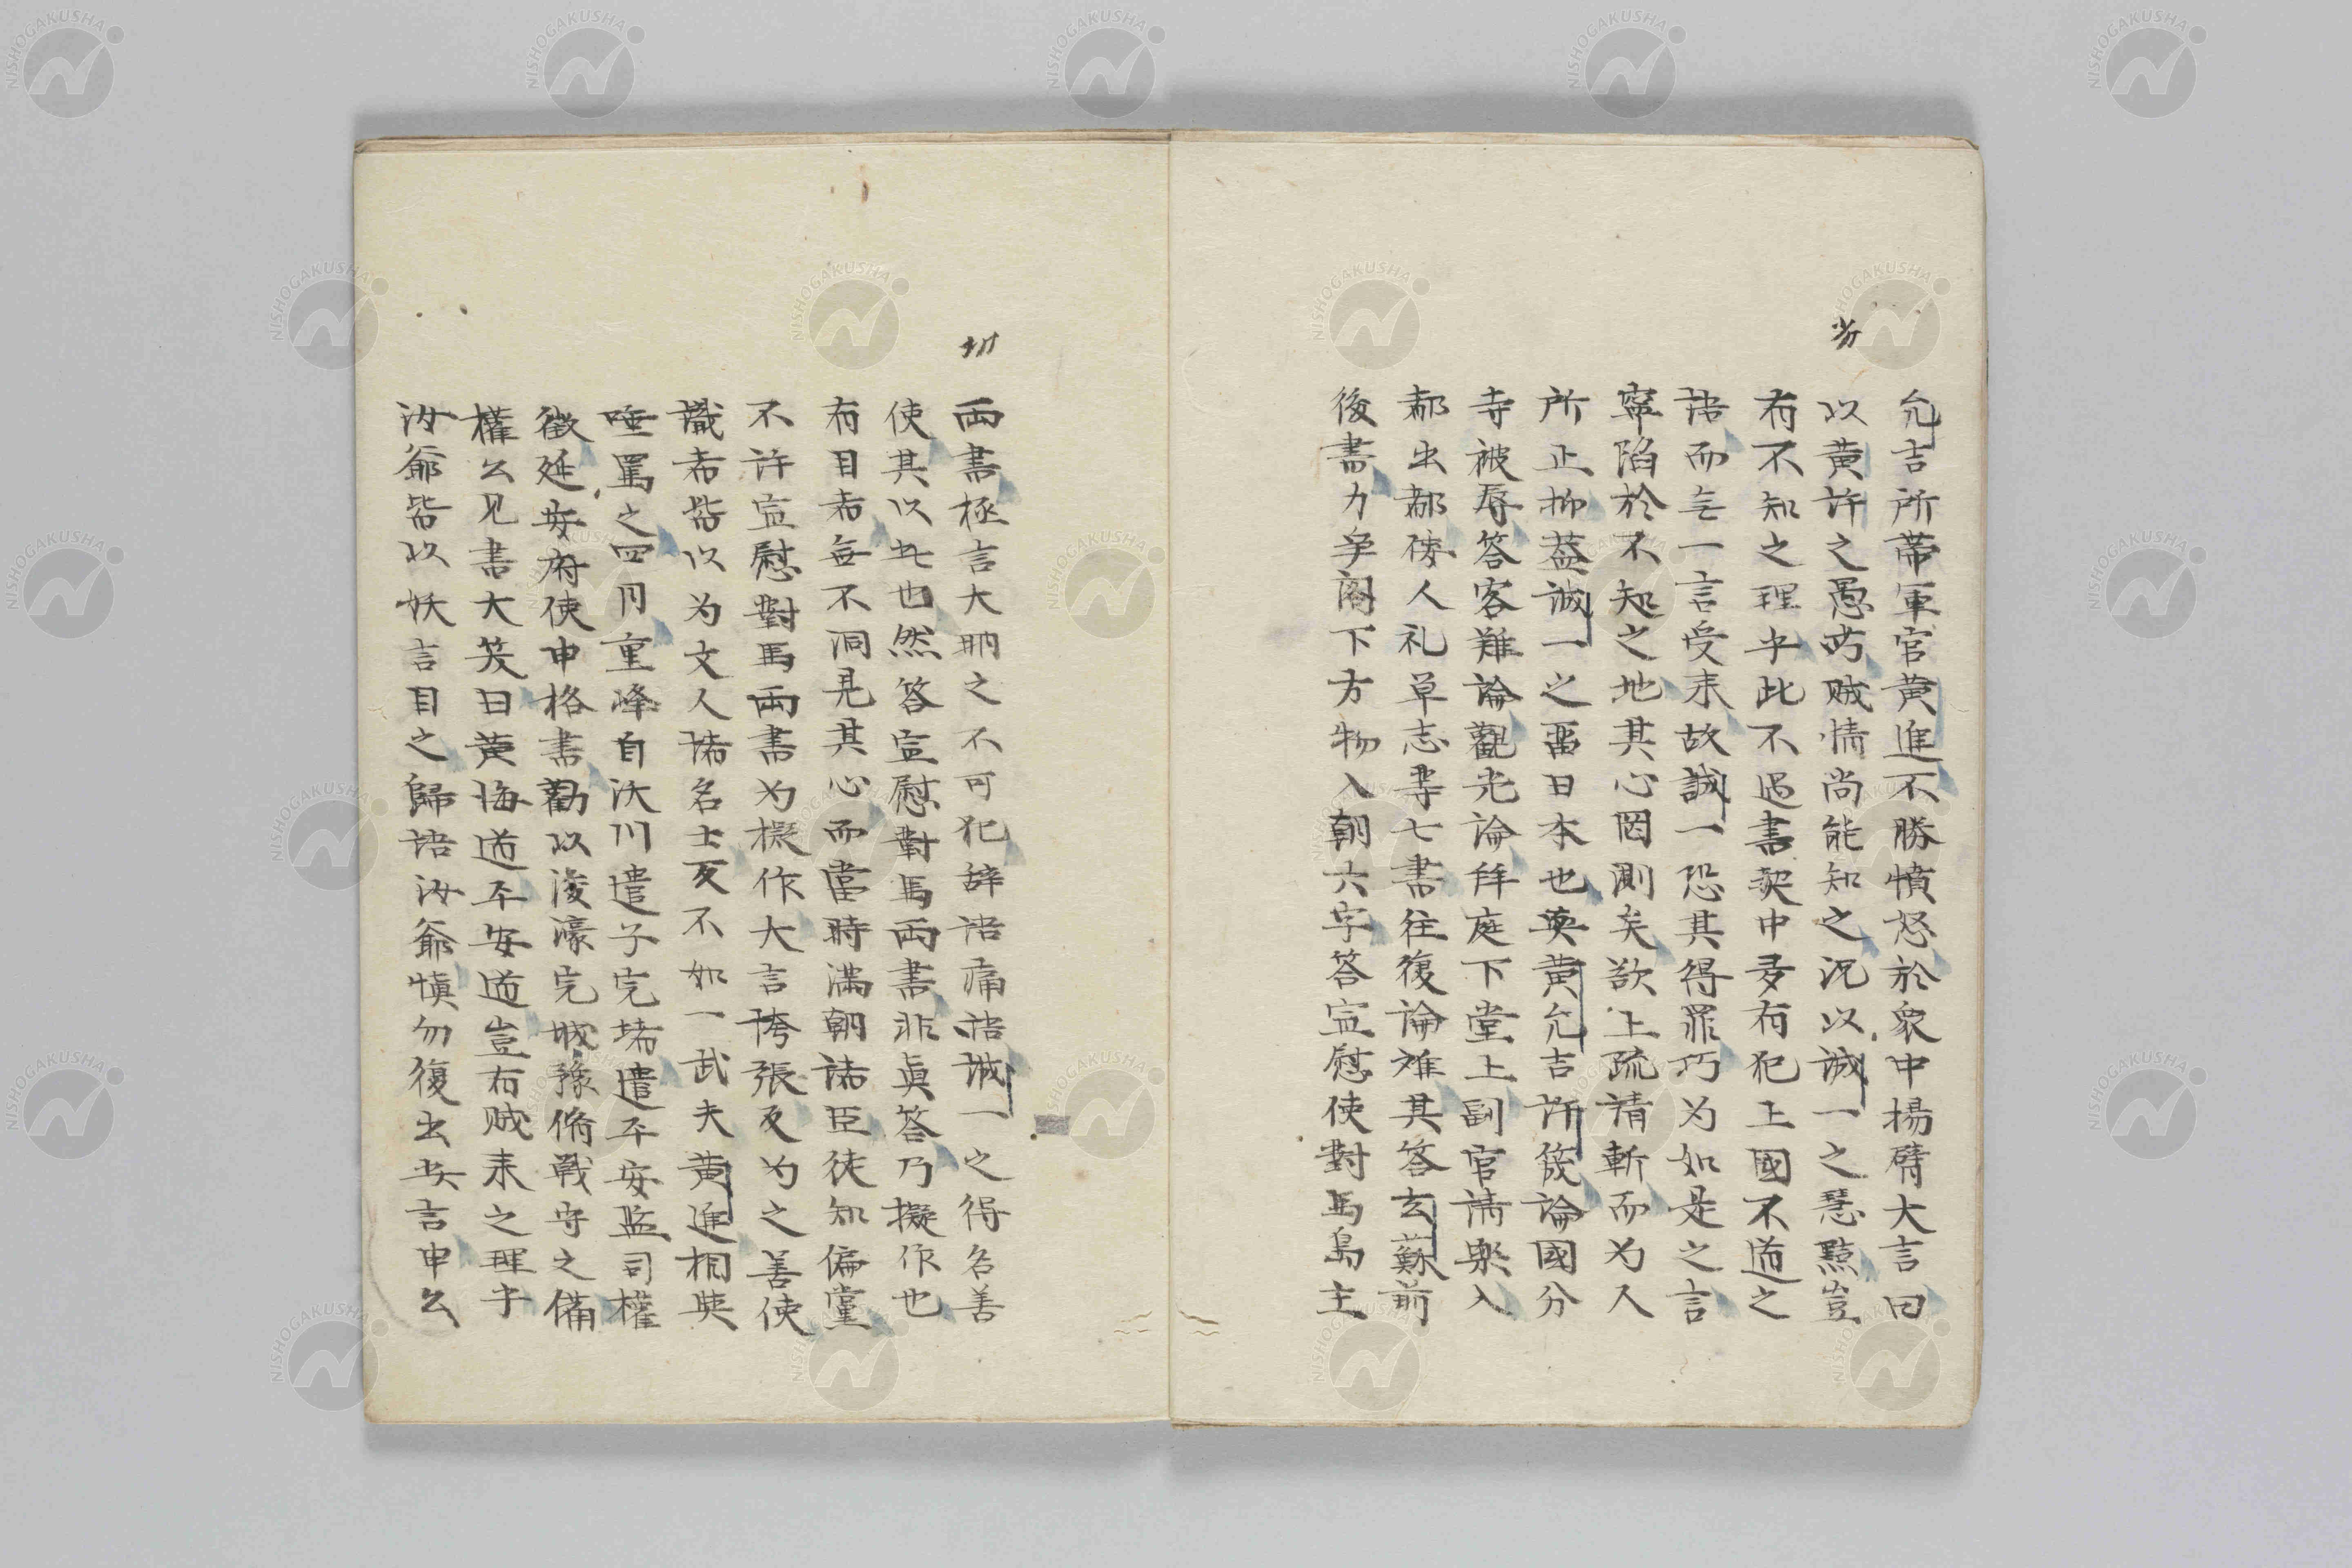 允吉所帯軍官黄進不勝憤怒於衆中揚臂大言曰
以黄許之愚芀賊情尚能知之况以誠一之慧黠豈
有不知之理乎此不過書契中多有犯上國不道之
語而無一言受来故誠一恐其得罪巧为如是之言
寧陷於不知之地其心罔測矣欲上疏請斬而为人
所止抑盖誠一之啚日本也與黄允吉許筬論國分
寺被辱答客難論觀光論拜庭下堂上副官請樂入
都出都倭人礼草志㝵七書往復論难其答玄蘇前
後書力争閤下方物入朝六字答宣慰使對馬島主
兩書極言大明之不可犯辞語痛誥誠一之得名善
使其以此也然答宣慰對馬兩書非真答乃擬作也
有目者無不洞見其心而當時滿朝諸臣徒知偏黨
不許宣慰對馬兩書为擬作大言誇張反为之善使
識者皆以为文人諸名士反不如一武夫黄進相與
唾罵之四月重峰自沃川遣子完堵遣平安監司權
徵延安府使申格書勸以浚濠完城豫脩戰守之備
權公见書大笑曰黄海道平安道豈有賊来之理乎
汝爺皆以妖言目之歸語汝爺慎勿復出此言申公
NISHOGAKUSHA